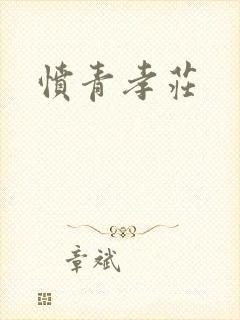 憤青孝莊
章斌